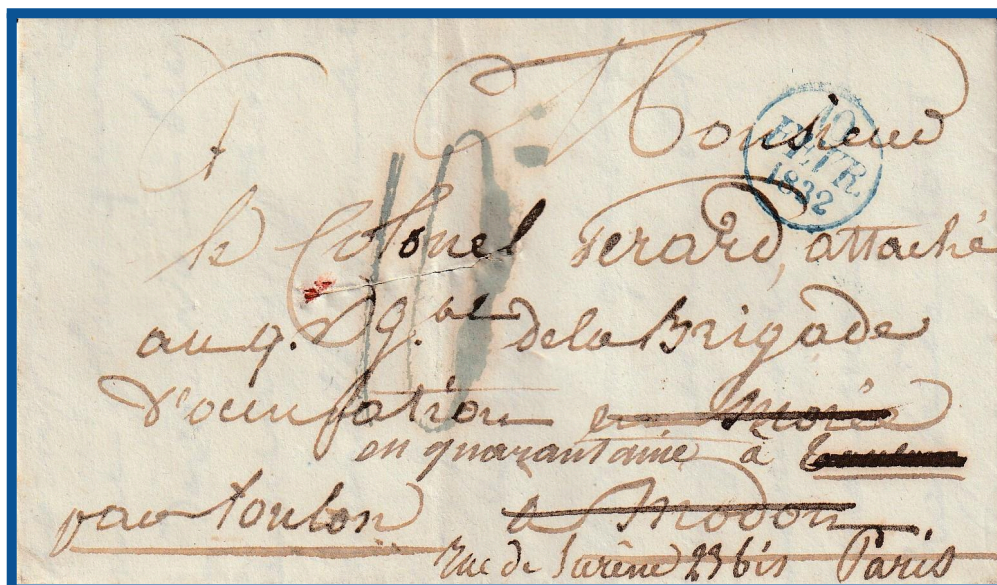 A Monsieur
10
FEVR.
1832
le Colonel Gerard, attaché
au q. Gal de la Brigade
d'occupation en Morée
en quarantaine à
par Toulon à Modon
Rue de Surène 23 bis Paris